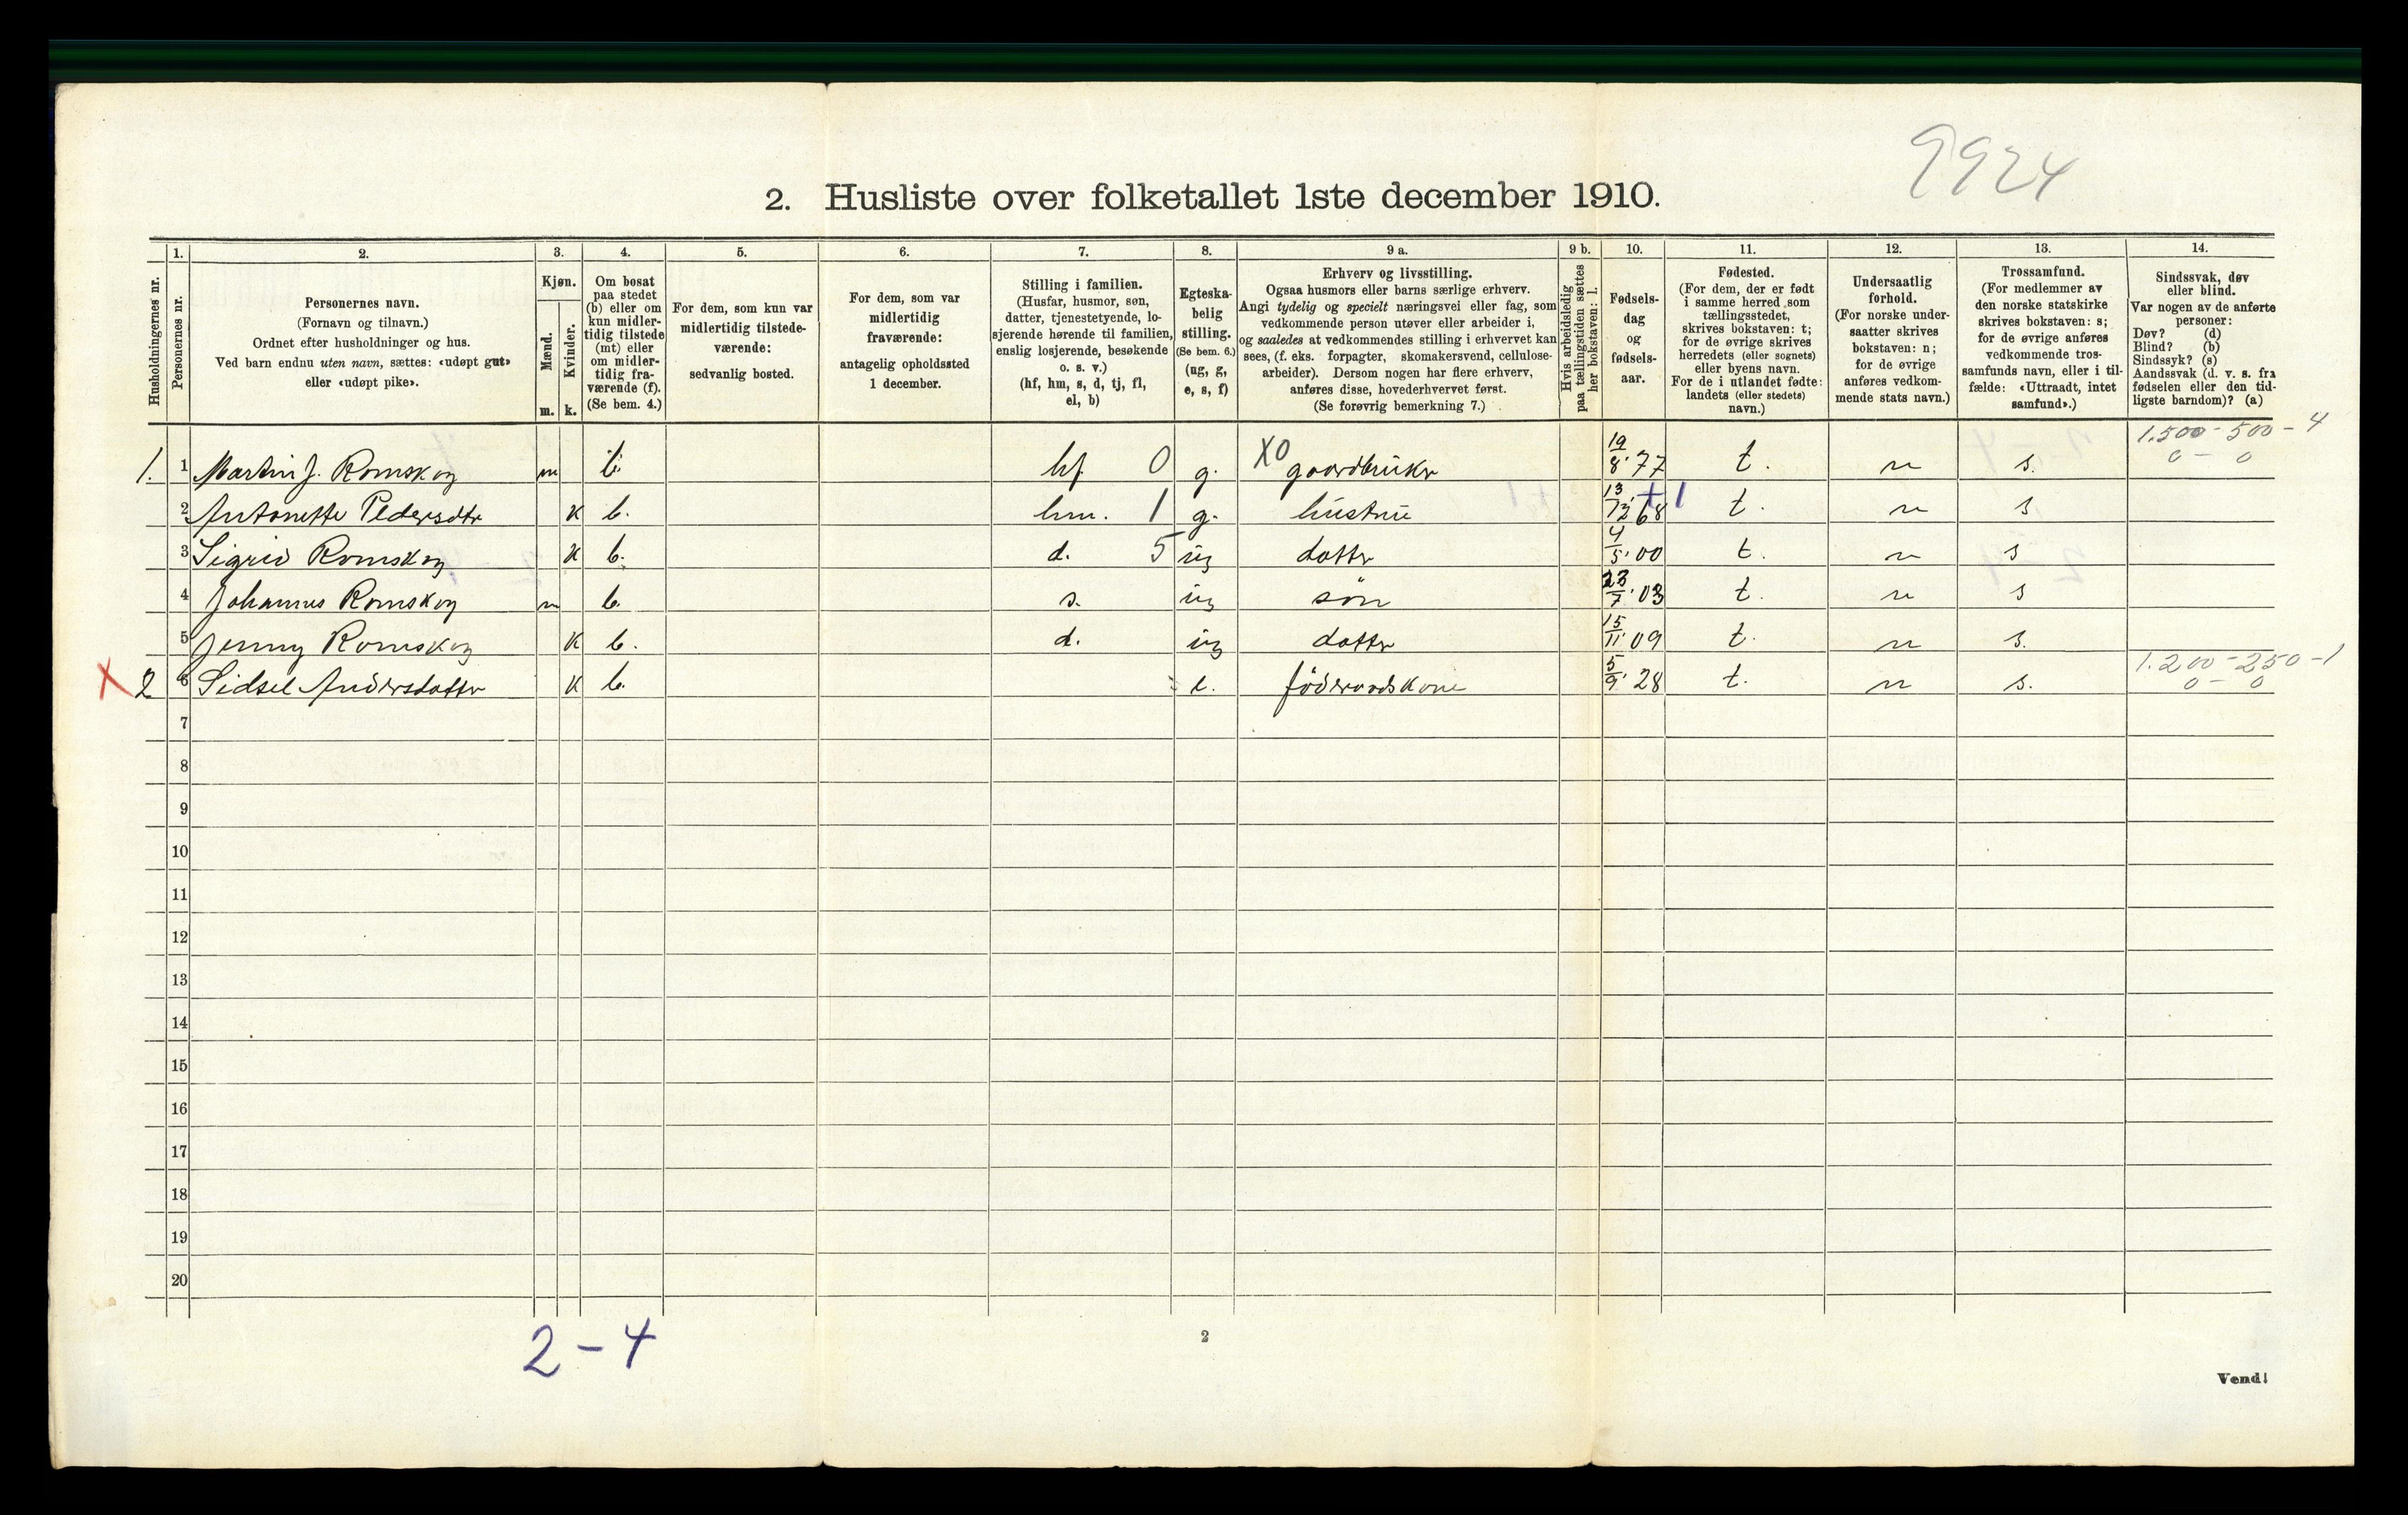 9924
2. Husliste over folketallet 1ste december 1910.
Husholdningernes nr.
1.
Personernes nr.
2.
Personernes navn.
(Fornavn og tilnavn.)
Ordnet efter husholdninger og hus.
Ved barn endnu uten navn, sættes: «udøpt gut»
eller «udøpt pike».
3.
Kjøn.
Mænd.
Kvinder.
m. k.
4.
Om bosat
paa stedet
(b) eller om
kun midler-
tidig tilstede
(mt) eller
om midler-
tidig fra-
værende (f).
(Se bem. 4.)
5.
For dem, som kun var
midlertidig tilstede-
værende:
sedvanlig bosted.
6.
For dem, som var
midlertidig
fraværende:
antagelig opholdssted
1 december.
7.
Stilling i familien.
(Husfar, husmor, søn,
datter, tjenestetyende, lo-
sjerende hørende til familien,
enslig losjerende, besøkende
o. s. v.)
(hf, hm, s, d, tj, fl,
el, b)
8.
Egteska-
belig
stilling.
(Se bem. 6.)
(ug, g,
e, s, f)
9 a.
Erhverv og livsstilling.
Ogsaa husmors eller barns særlige erhverv.
Angi tydelig og specielt næringsvei eller fag, som
vedkommende person utøver eller arbeider i,
og saaledes at vedkommendes stilling i erhvervet kan
sees, (f. eks. forpagter, skomakersvend, cellulose-
arbeider). Dersom nogen har flere erhverv,
anføres disse, hovederhvervet først.
(Se forøvrig bemerkning 7.)
9 b.
Hvis arbeidsledig
paa tællingstiden sættes
her bokstaven: l.
10.
Fødsels-
dag
og
fødsels-
aar.
11.
Fødested.
(For dem, der er født
i samme herred som
tællingsstedet,
skrives bokstaven: t;
for de øvrige skrives
herredets (eller sognets)
eller byens navn.
For de i utlandet fødte:
landets (eller stedets)
navn.)
12.
Undersaatlig
forhold.
(For norske under-
saatter skrives
bokstaven: n;
for de øvrige
anføres vedkom-
mende stats navn.)
13.
Trossamfund.
(For medlemmer av
den norske statskirke
skrives bokstaven: s;
for de øvrige anføres
vedkommende tros-
samfunds navn, eller i til-
fælde: «Uttraadt, intet
samfund».)
14.
Sindssvak, døv
eller blind.
Var nogen av de anførte
personer:
Døv? (d)
Blind? (b)
Sindssyk? (s)
Aandssvak (d. v. s. fra
fødselen eller den tid-
ligste barndom)? (a)
1. 1 Martin J. Romskog m b. hf 0 g. X0 gaardbruker 19/8 77 t. n s. 1.500-500-4 0-0
2 Antonette Pedersdtr k b. hm. 1 g. hustru 13/12 68 +1 t. n s
3 Sigrid Romskog k b. d. 5 ug datter 4/5 00 t. n s
4 Johannes Romskog m b. s. ug søn 23/7 03 t. n s
5 Jenny Romskog k b. d. ug datter 15/11 09 t. n s.
X 2 6 Sidsel Andersdatter k b. e. föderaadskone 5/9 28 t. n s. 1.200-250-1 0-0
7
8
9
10
11
12
13
14
15
16
17
18
19
20
2-4
2
Vend!